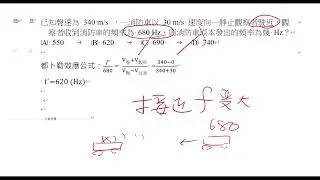 已知聲速為 340 m/s ，一消防車以 30 m/s 速度向一靜止觀察者發近，觀
察者收到消防車的頻率為 680 Hz，則消防車原本發出的頻率為幾 Hz？
(A) 550 (B) 620 (C) 690 (D) 740
都卜勒效應公式： f'/680 = V聲±V觀察/V聲-V音源 = 340-0/340+30
f'=620 (Hz)
接近 f 變大
680